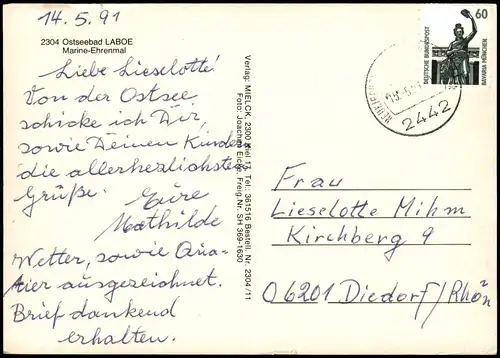 14.5.91
2304 Ostseebad LABOE
Marine-Ehrenmal
Liebe Lieselotte!
Von der Ostsee
schicke ich Dir,
sowie Deinen Kindern
die allerherzlichsten
Grüße.
Eure
Mathilde
Wetter, sowie Qua-
tier ausgezeichnet.
Brief dankend
erhalten.
Verlag: MIELCK, 2300 Kiel 17, Tel: 361516 Bestell. Nr. 2304/11
Foto: Joachim Eicke, Freig.Nr. SH 369-1630
60
DEUTSCHE BUNDESPOST
BAVARIA MÜNCHEN
2442
Frau
Lieselotte Mihm
Kirchberg 9
O6201 Diedorf/Rhön